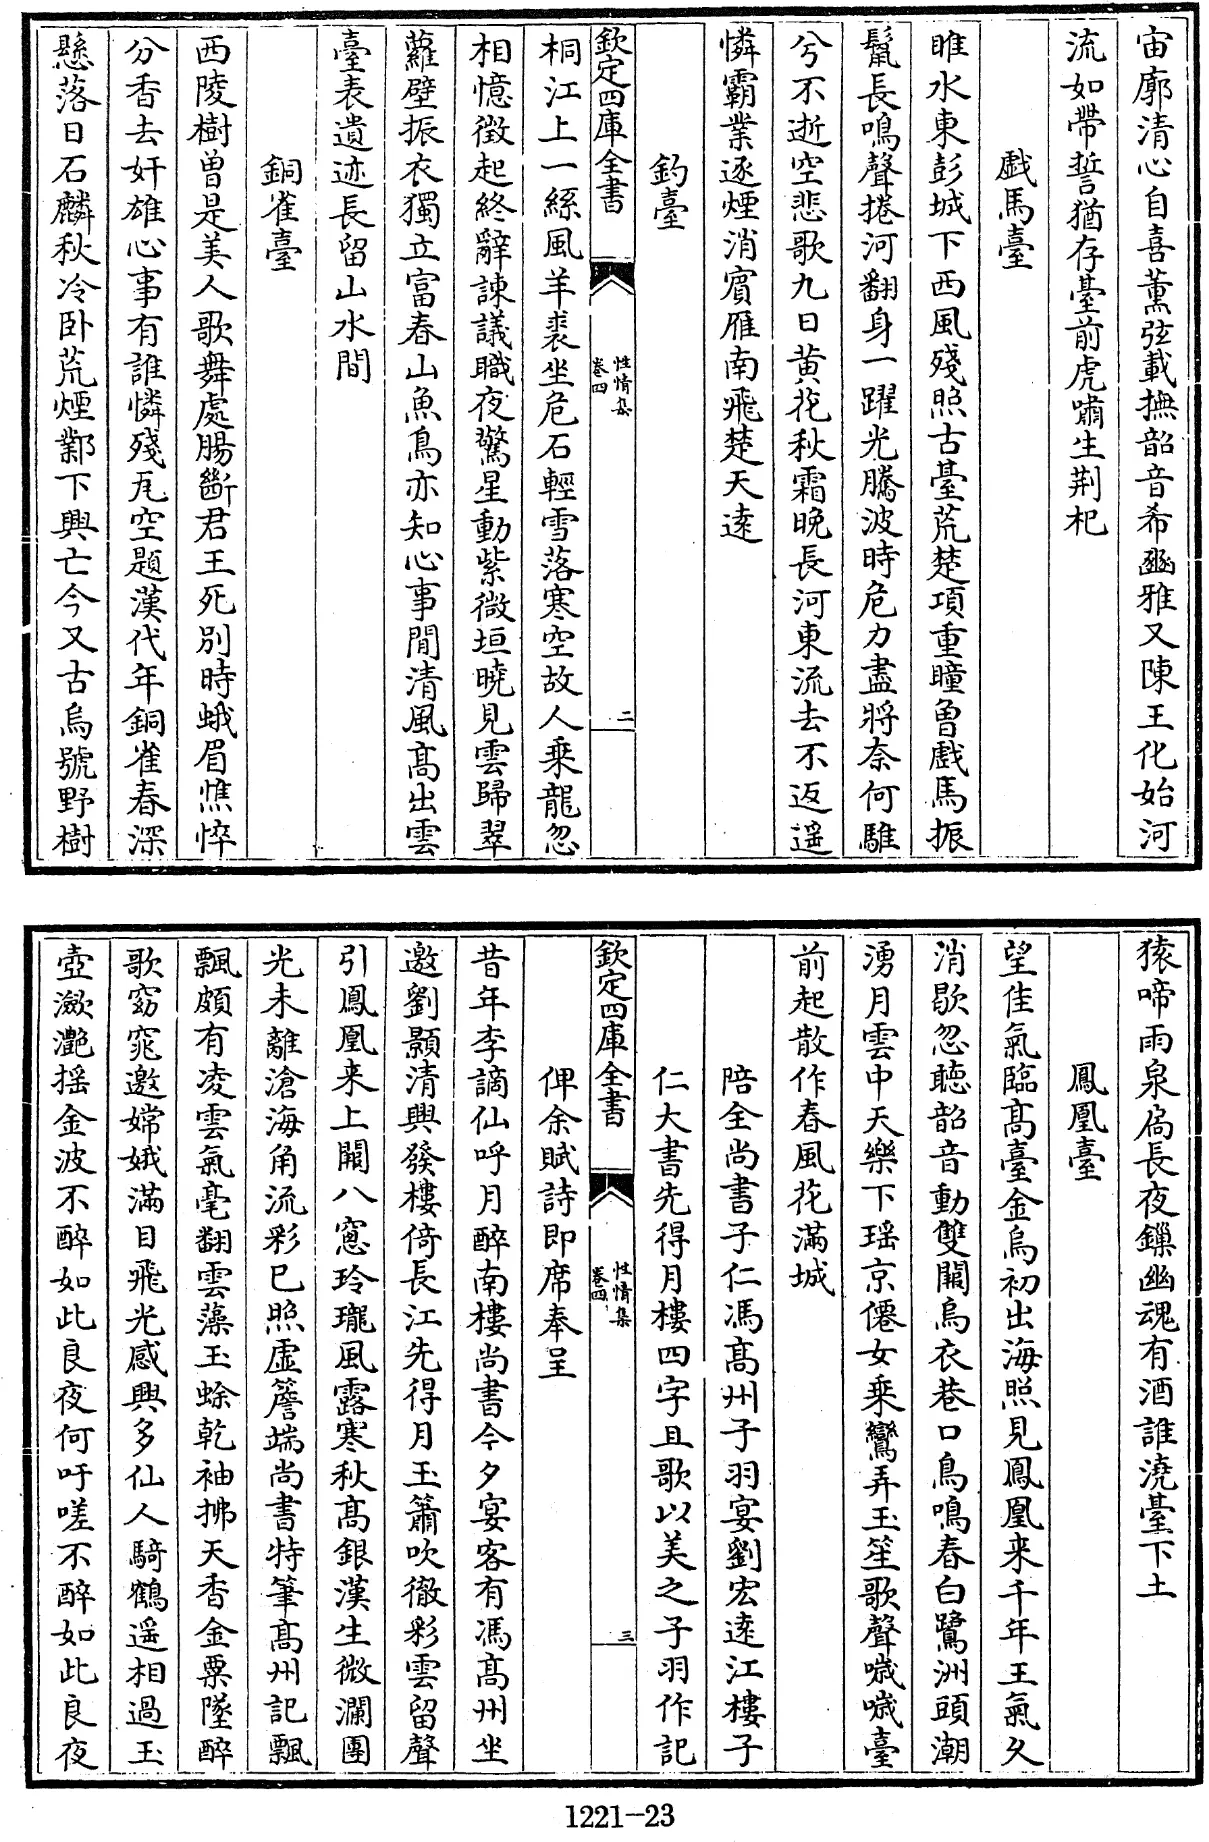 宙廓清心自喜薰弦載撫韶音希幽雅又陳王化始河
流如帶誓猶存臺前虎嘯生荆杞
戲馬臺
睢水東彭城下西風殘照古臺荒楚項重瞳曾戲馬振
鬛長鳴聲捲河翻身一躍光騰波時危力盡將奈何騅
兮不逝空悲歌九日黄花秋霜晚長河東流去不返遥
憐霸業逐煙消賓雁南飛楚天逺
釣臺
欽定四庫全書
性情集
卷四
二
桐江上一絲風羊裘坐危石輕雪落寒空故人乗龍忽
相憶徴起終辭諫議職夜驚星動紫微垣曉見雲歸翠
蘿壁振衣獨立富春山魚鳥亦知心事閒清風髙出雲
臺表遺迹長留山水間
銅雀臺
西陵樹曽是美人歌舞處腸斷君王死别時蛾眉憔悴
分香去奸雄心事有誰憐殘瓦空題漢代年銅雀春深
懸落日石麟秋冷卧荒煙鄴下興亡今又古烏號野樹
猿啼雨泉扃長夜鏁幽魂有酒誰澆臺下土
鳳凰臺
望佳氣臨髙臺金烏初出海照見鳳凰来千年王氣久
消歇忽聴韶音動雙闕烏衣巷口鳥鳴春白鷺洲頭潮
湧月雲中天樂下瑶京僊女乗鸞弄玉笙歌聲噦噦臺
前起散作春風花滿城
陪全尚書子仁馮髙州子羽宴劉宏逺江樓子
仁大書先得月樓四字且歌以美之子羽作記
俾余賦詩即席奉呈
欽定四庫全書
性情集
卷四
三
昔年李謫仙呼月醉南樓尚書今夕宴客有馮髙州坐
邀劉顥清興發樓倚長江先得月玉簫吹徹彩雲留聲
引鳳凰来上闕八窻玲瓏風露寒秋髙銀漢生微瀾團
光未離滄海角流彩已照虚簷端尚書特筆髙州記飄
飄頗有凌雲氣毫翻雲藻玉蜍乾袖拂天香金粟墜醉
歌窈窕邀嫦娥滿目飛光感興多仙人騎鶴遥相過玉
壺瀲灧揺金波不醉如此良夜何吁嗟不醉如此良夜
1221-23